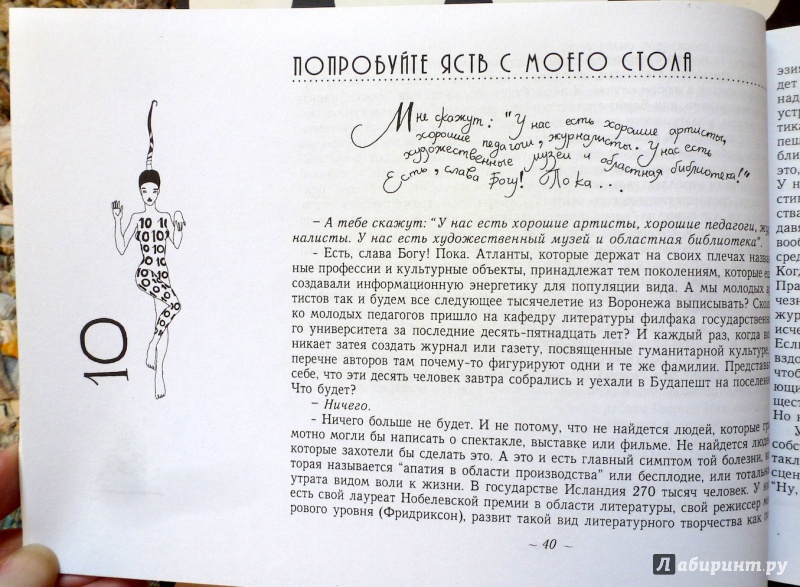 ПОПРОБУЙТЕ ЯСТВ С МОЕГО СТОЛА
Мне скажут: "У нас есть хорошие артисты,
хорошие педагоги, журналисты. У нас есть
художественные музеи и областная библиотека!"
Есть, слава Богу! Пока...
10 10
10 10
10 10
10
10
– А тебе скажут: "У нас есть хорошие артисты, хорошие педагоги, жур
налисты. У нас есть художественный музей и областная библиотека".
- Есть, слава Богу! Пока. Атланты, которые держат на своих плечах назва
ные профессии и культурные объекты, принадлежат тем поколениям, которые ещ
создавали информационную энергетику для популяции вида. А мы молодых а
тистов так и будем все следующее тысячелетие из Воронежа выписывать? Скол
ко молодых педагогов пришло на кафедру литературы филфака государственн
го университета за последние десять-пятнадцать лет? И каждый раз, когда во
никает затея создать журнал или газету, посвященные гуманитарной культуре,
перечне авторов там почему-то фигурируют одни и те же фамилии. Представь
себе, что эти десять человек завтра собрались и уехали в Будапешт на поселени
Что будет?
– Ничего.
- Ничего больше не будет. И не потому, что не найдется людей, которые гр
мотно могли бы написать о спектакле, выставке или фильме. Не найдется люде
которые захотели бы сделать это. А это и есть главный симптом той болезни, ко
торая называется "апатия в области производства" или бесплодие, или тотальн
утрата видом воли к жизни. В государстве Исландия 270 тысяч человек. У них
есть свой лауреат Нобелевской премии в области литературы, свой режиссер ми
рового уровня (Фридриксон), развит такой вид литературного творчества как
~ 40 ~
эзия
дет
над
устр
тика
пеш
бли
это,
У н
сти
ства
давя
воо
сред
Когд
Пра
чезн
жур
исче
Если
вздо
чтоб
ющи
щест
Но н
У
собс
такл
сцен
"Ну,
Лабиринт.ру